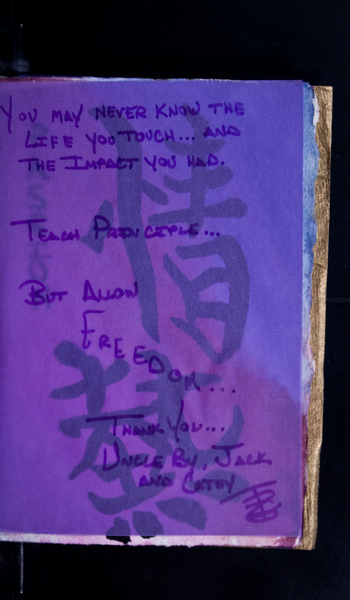 YOU MAY NEVER KNOW THE
LIFE YOU TOUCH... AND
THE IMPACT YOU HAD.
TEACH PRINCIPLE...
BUT ALLOW
FREEDOM...
THANK YOU...
UNCLE BY, JACK
AND CATHY